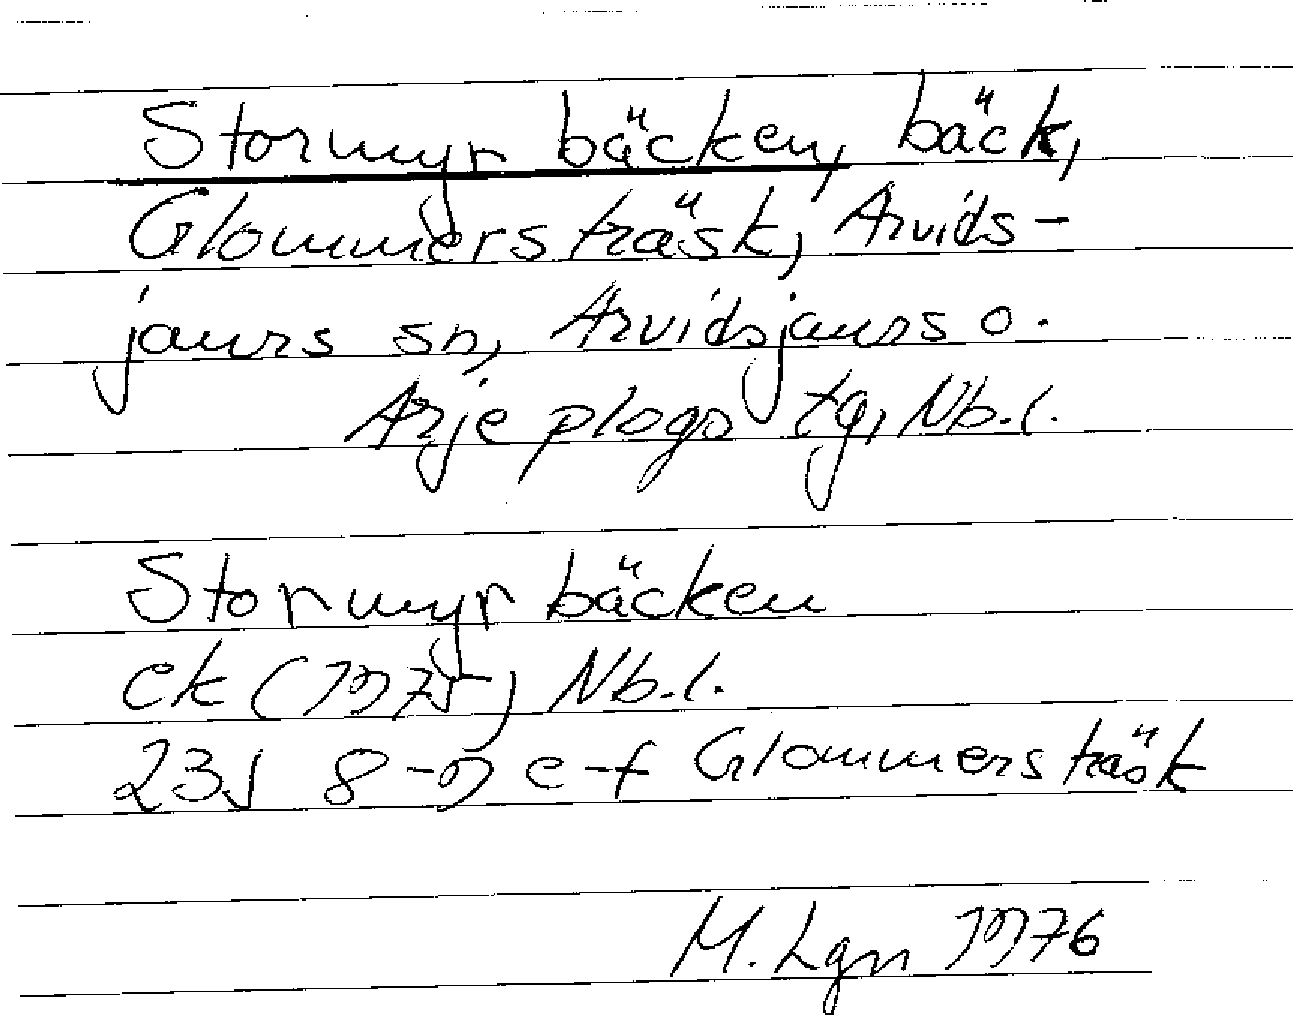 Stormyrbäcken, bäck,
Glommersträsk, Arvids-
jaurs sn, Arvidsjaurs o.
Arjeplogs tg, Nb.l.
Stormyrbäcken
ek (1975), Nb.l.
23J 8-9 e-f Glommersträsk
M. Lgn 1976